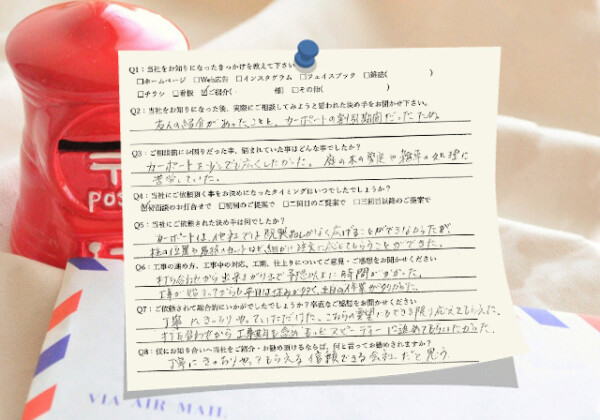 Q1：当社をお知りになったきっかけを教えて下さい。
□ホームページ □Web広告 □インスタグラム □フェイスブック □雑誌( )
□チラシ □看板 ☑ご紹介( 様) □その他( )
Q2：当社をお知りになった後、実際にご相談してみようと思われた決め手をお聞かせ下さい。
友人の紹介があったことと、カーポートの割引期間だったため。
Q3：ご相談前にお困りだった事、悩まれていた事はどんな事でしたか？
カーポートを少しでも広くしたかった。庭の木の剪定や雑草の処理に
苦労していた。
Q4：当社にご依頼頂く事をお決めになったタイミングはいつでしたでしょうか？
☑初回面談のお打合せで □初回のご提案で □二回目のご提案で □三回目以降のご提案で
Q5：当社にご依頼された決め手は何でしたか？
カーポートは、他社では広げることができなかったが、
柱の位置や屋根のカットなど、細かに注文に応じてもらうことができた。
Q6：工事の進め方、工事中の対応、工期、仕上りについてご意見・ご感想をお聞かせください
打ち合わせから出来上がりまで予想以上に時間がかかった。
工事が始まってからも平日は休みがちで、土日の作業が多かった。
Q7：ご依頼されて総合的にいかがでしたでしょうか？率直なご感想をお聞かせください
丁寧にきっちりやっていただけた。こちらの要望もできる限り応えてもらえた。
打ち合わせから工事終了を含めもっとスピーディーに進めてもらいたかった。
Q8：仮にお知り合いへ当社をご紹介・お勧め頂けるならば、何と言ってお勧めされますか？
丁寧にきっちりやってもらえる信頼できる会社だと思う。
POS
VIA AIR MAIL